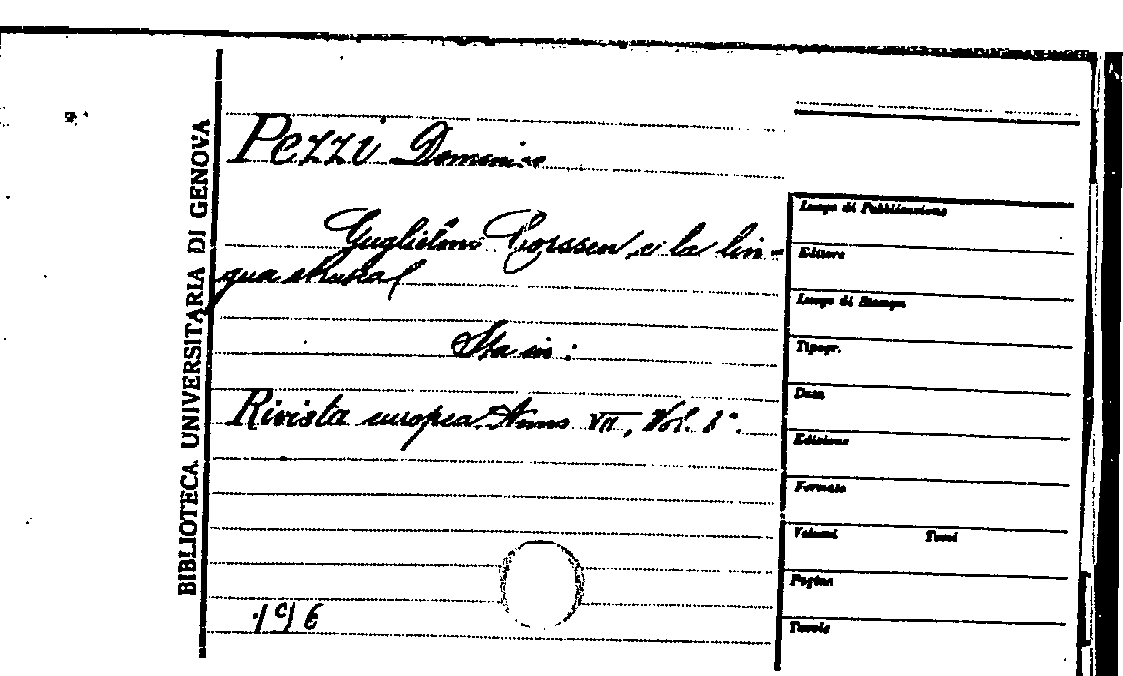 BIBLIOTECA UNIVERSITARIA DI GENOVA
Pezzi Domenico
Guglielmo Corssen e la lin-
gua etrusca
Sta in:
Rivista europea Anno VII, Vol. 1°.
Luogo di Pubblicazione
Editore
Luogo di Stampa
Tipogr.
Data
Edizione
Formato
Volumi Tomi
Pagine
Tavole